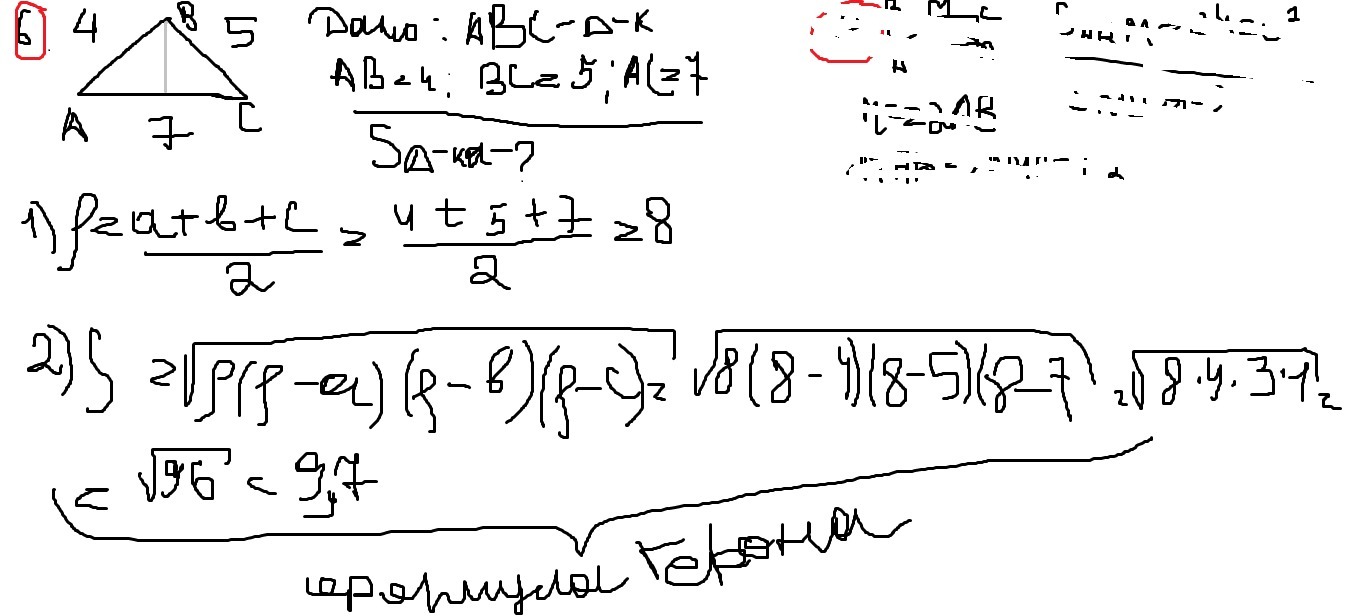 6
4 B 5
A 7 C
Дано: ABC-Δ-к
AB=4; BC=5; AC=7
SΔ-ка-?
1) p=a+b+c/2=4+5+7/2=8
2) S=√p(p-a)(p-b)(p-c)=√8(8-4)(8-5)(8-7)=√8·4·3·1=
=√96=9,7
формула Герона